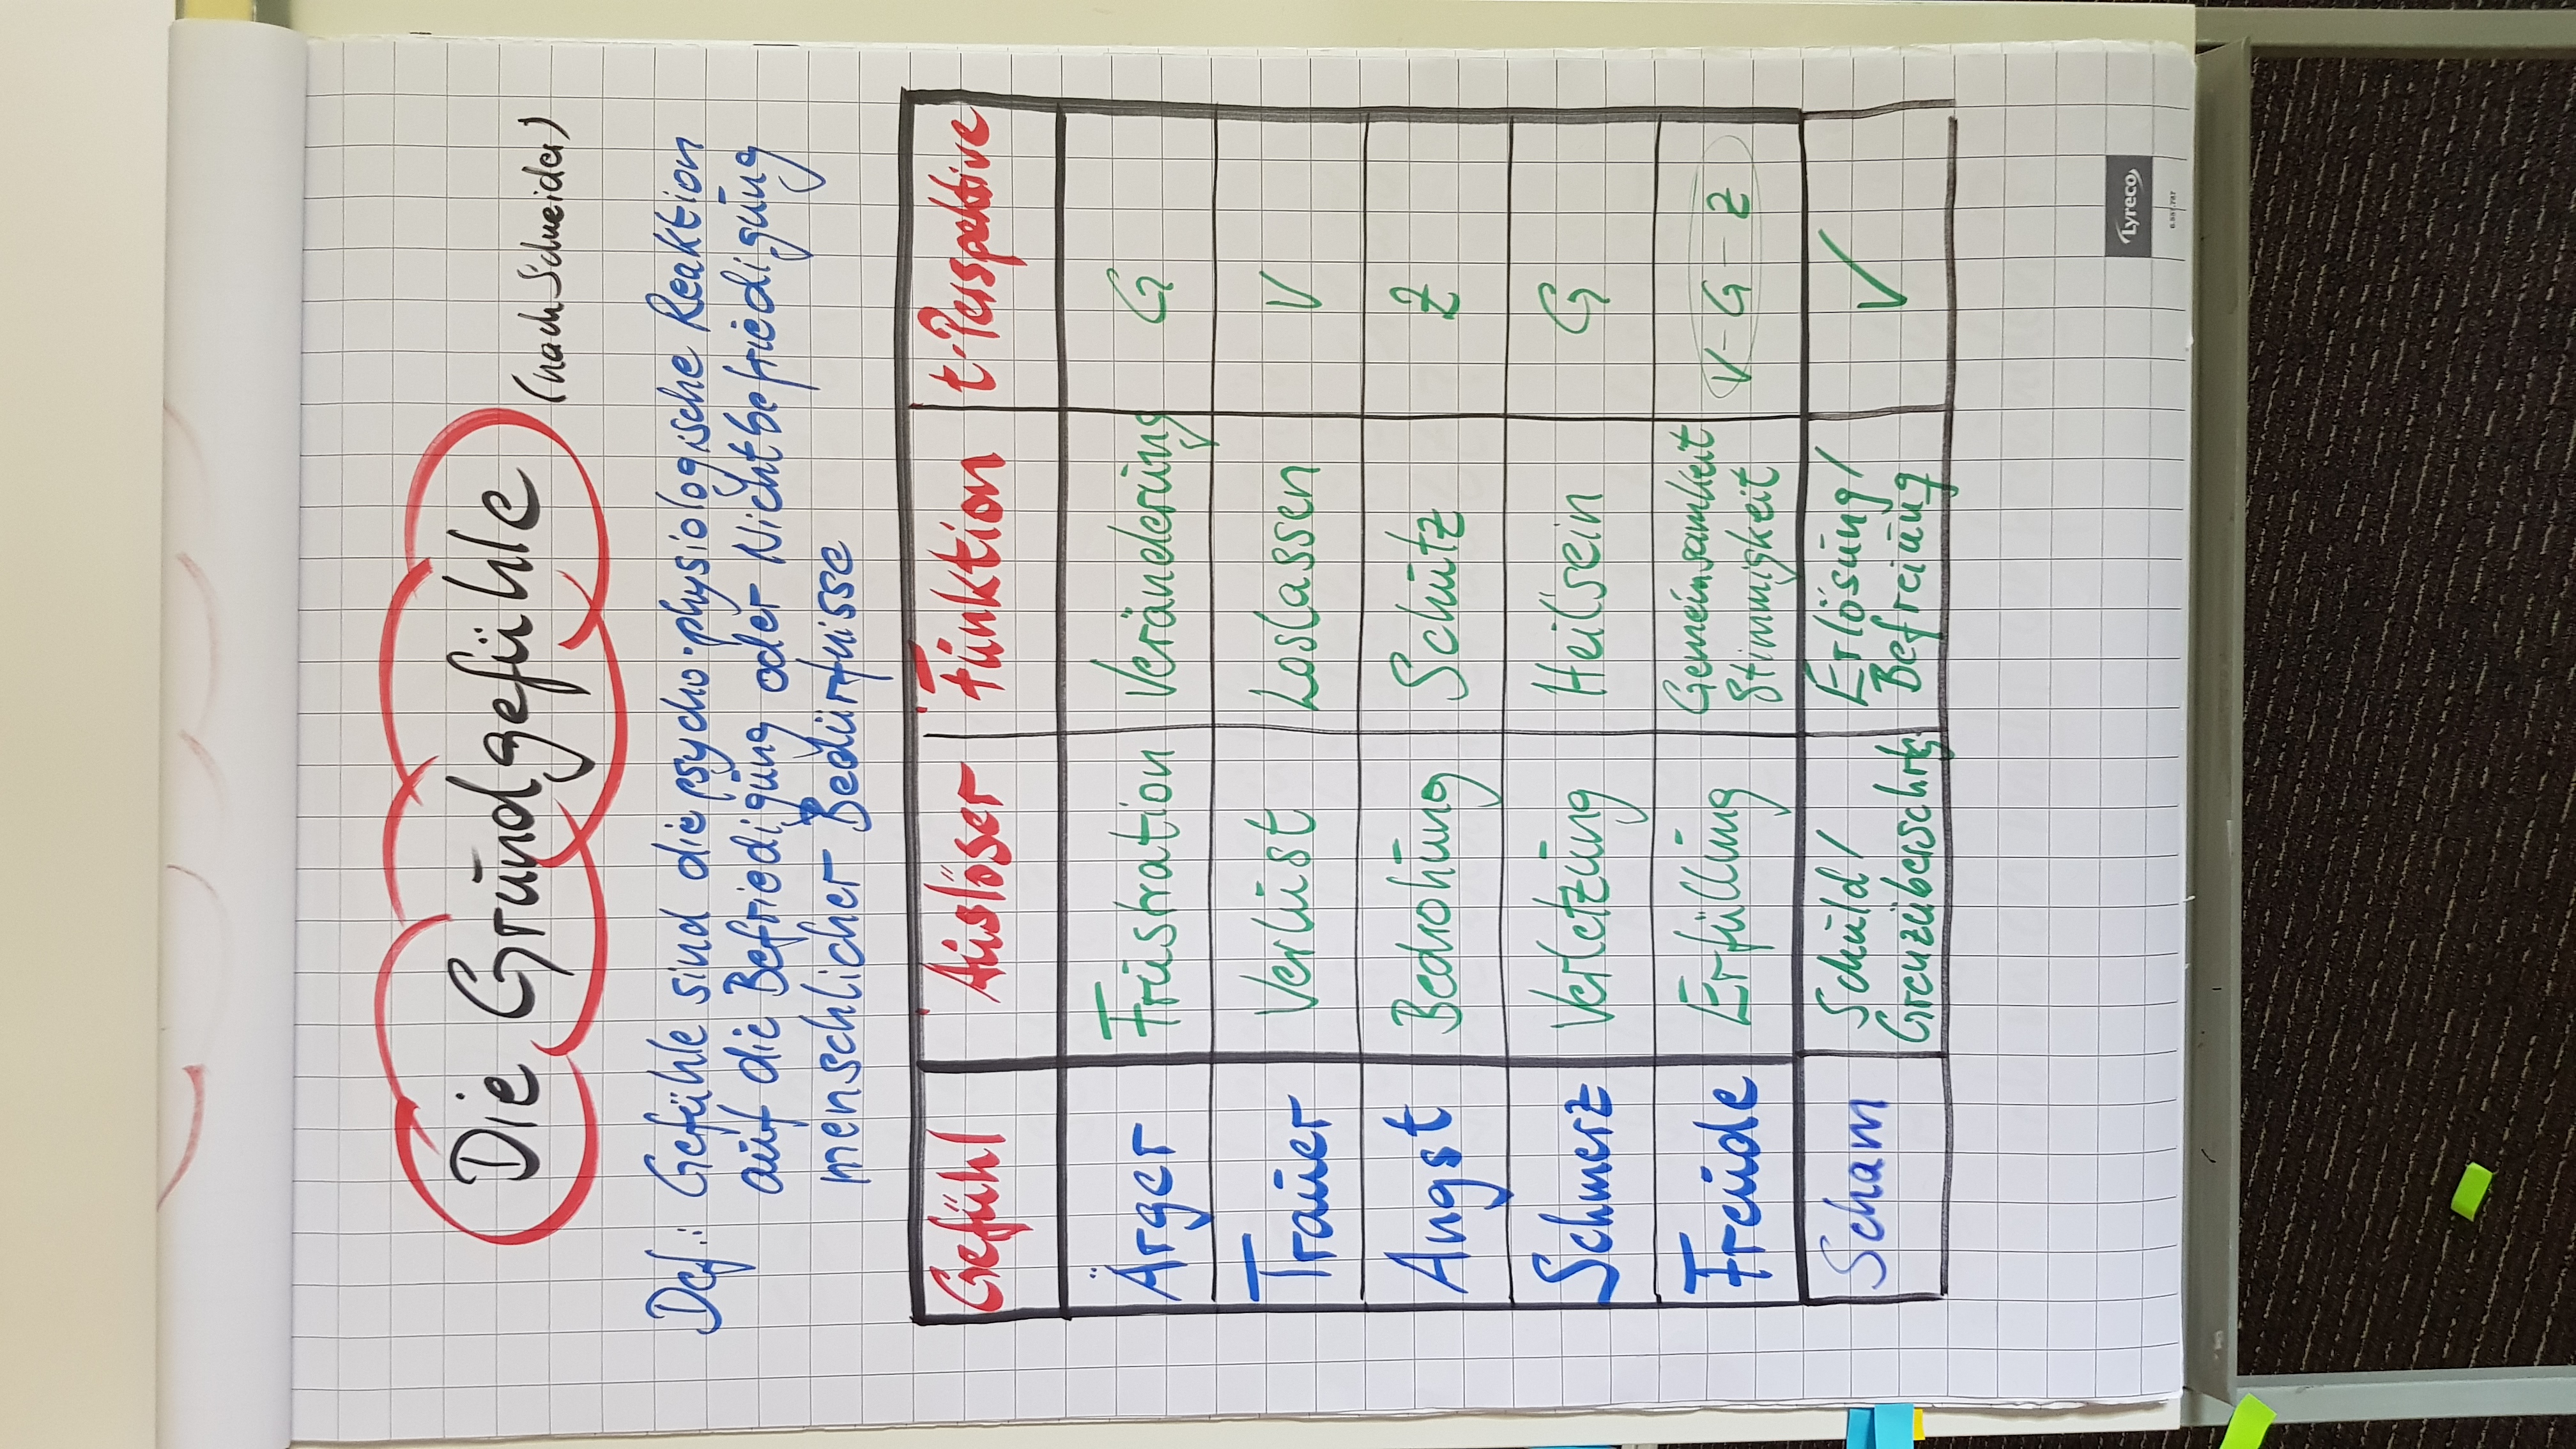 Die Grundgefühle
(nach Schneider)
Def.: Gefühle sind die psycho-physiologische Reaktion
auf die Befriedigung oder Nichtbefriedigung
menschlicher Bedürfnisse
Gefühl Auslöser Funktion t-Perspektive
Ärger Frustration Veränderung G
Trauer Verlust Loslassen V
Angst Bedrohung Schutz Z
Schmerz Verletzung Heil'sein G
Freude Erfüllung Gemeinsamkeit
Stimmigkeit V-G-Z
Scham Schuld/ Erlösung/ ✓
Grenzüberschrtg. Befreiung
Lyreco
6.557.787